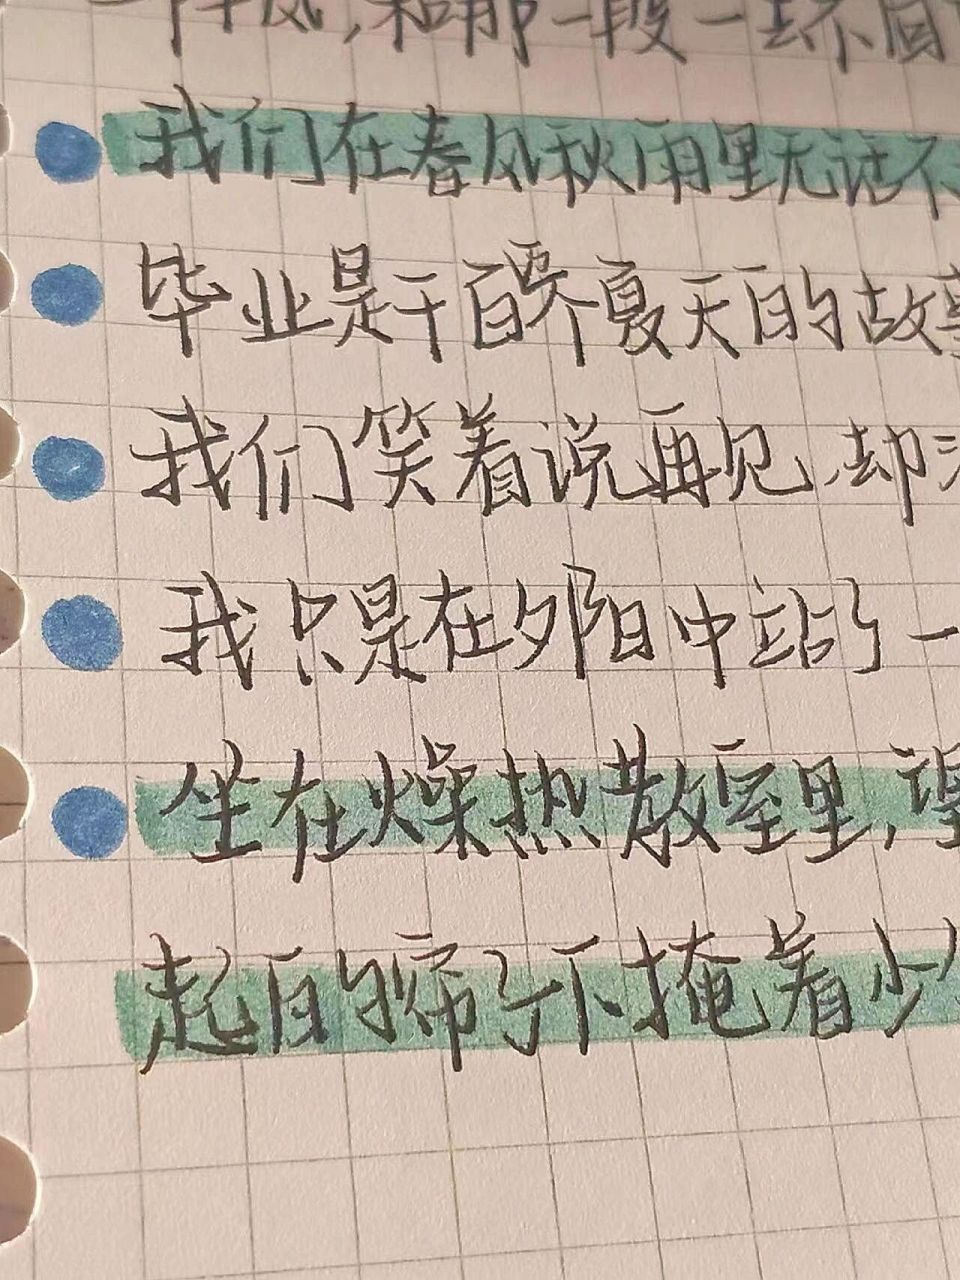 一阵风,和那一段一去不回
我们在春风秋雨里无话不
毕业是千百个夏天的故事
我们笑着说再见,却
我只是在夕阳中站了一
坐在燥热教室里,望
起的帘子下掩着少